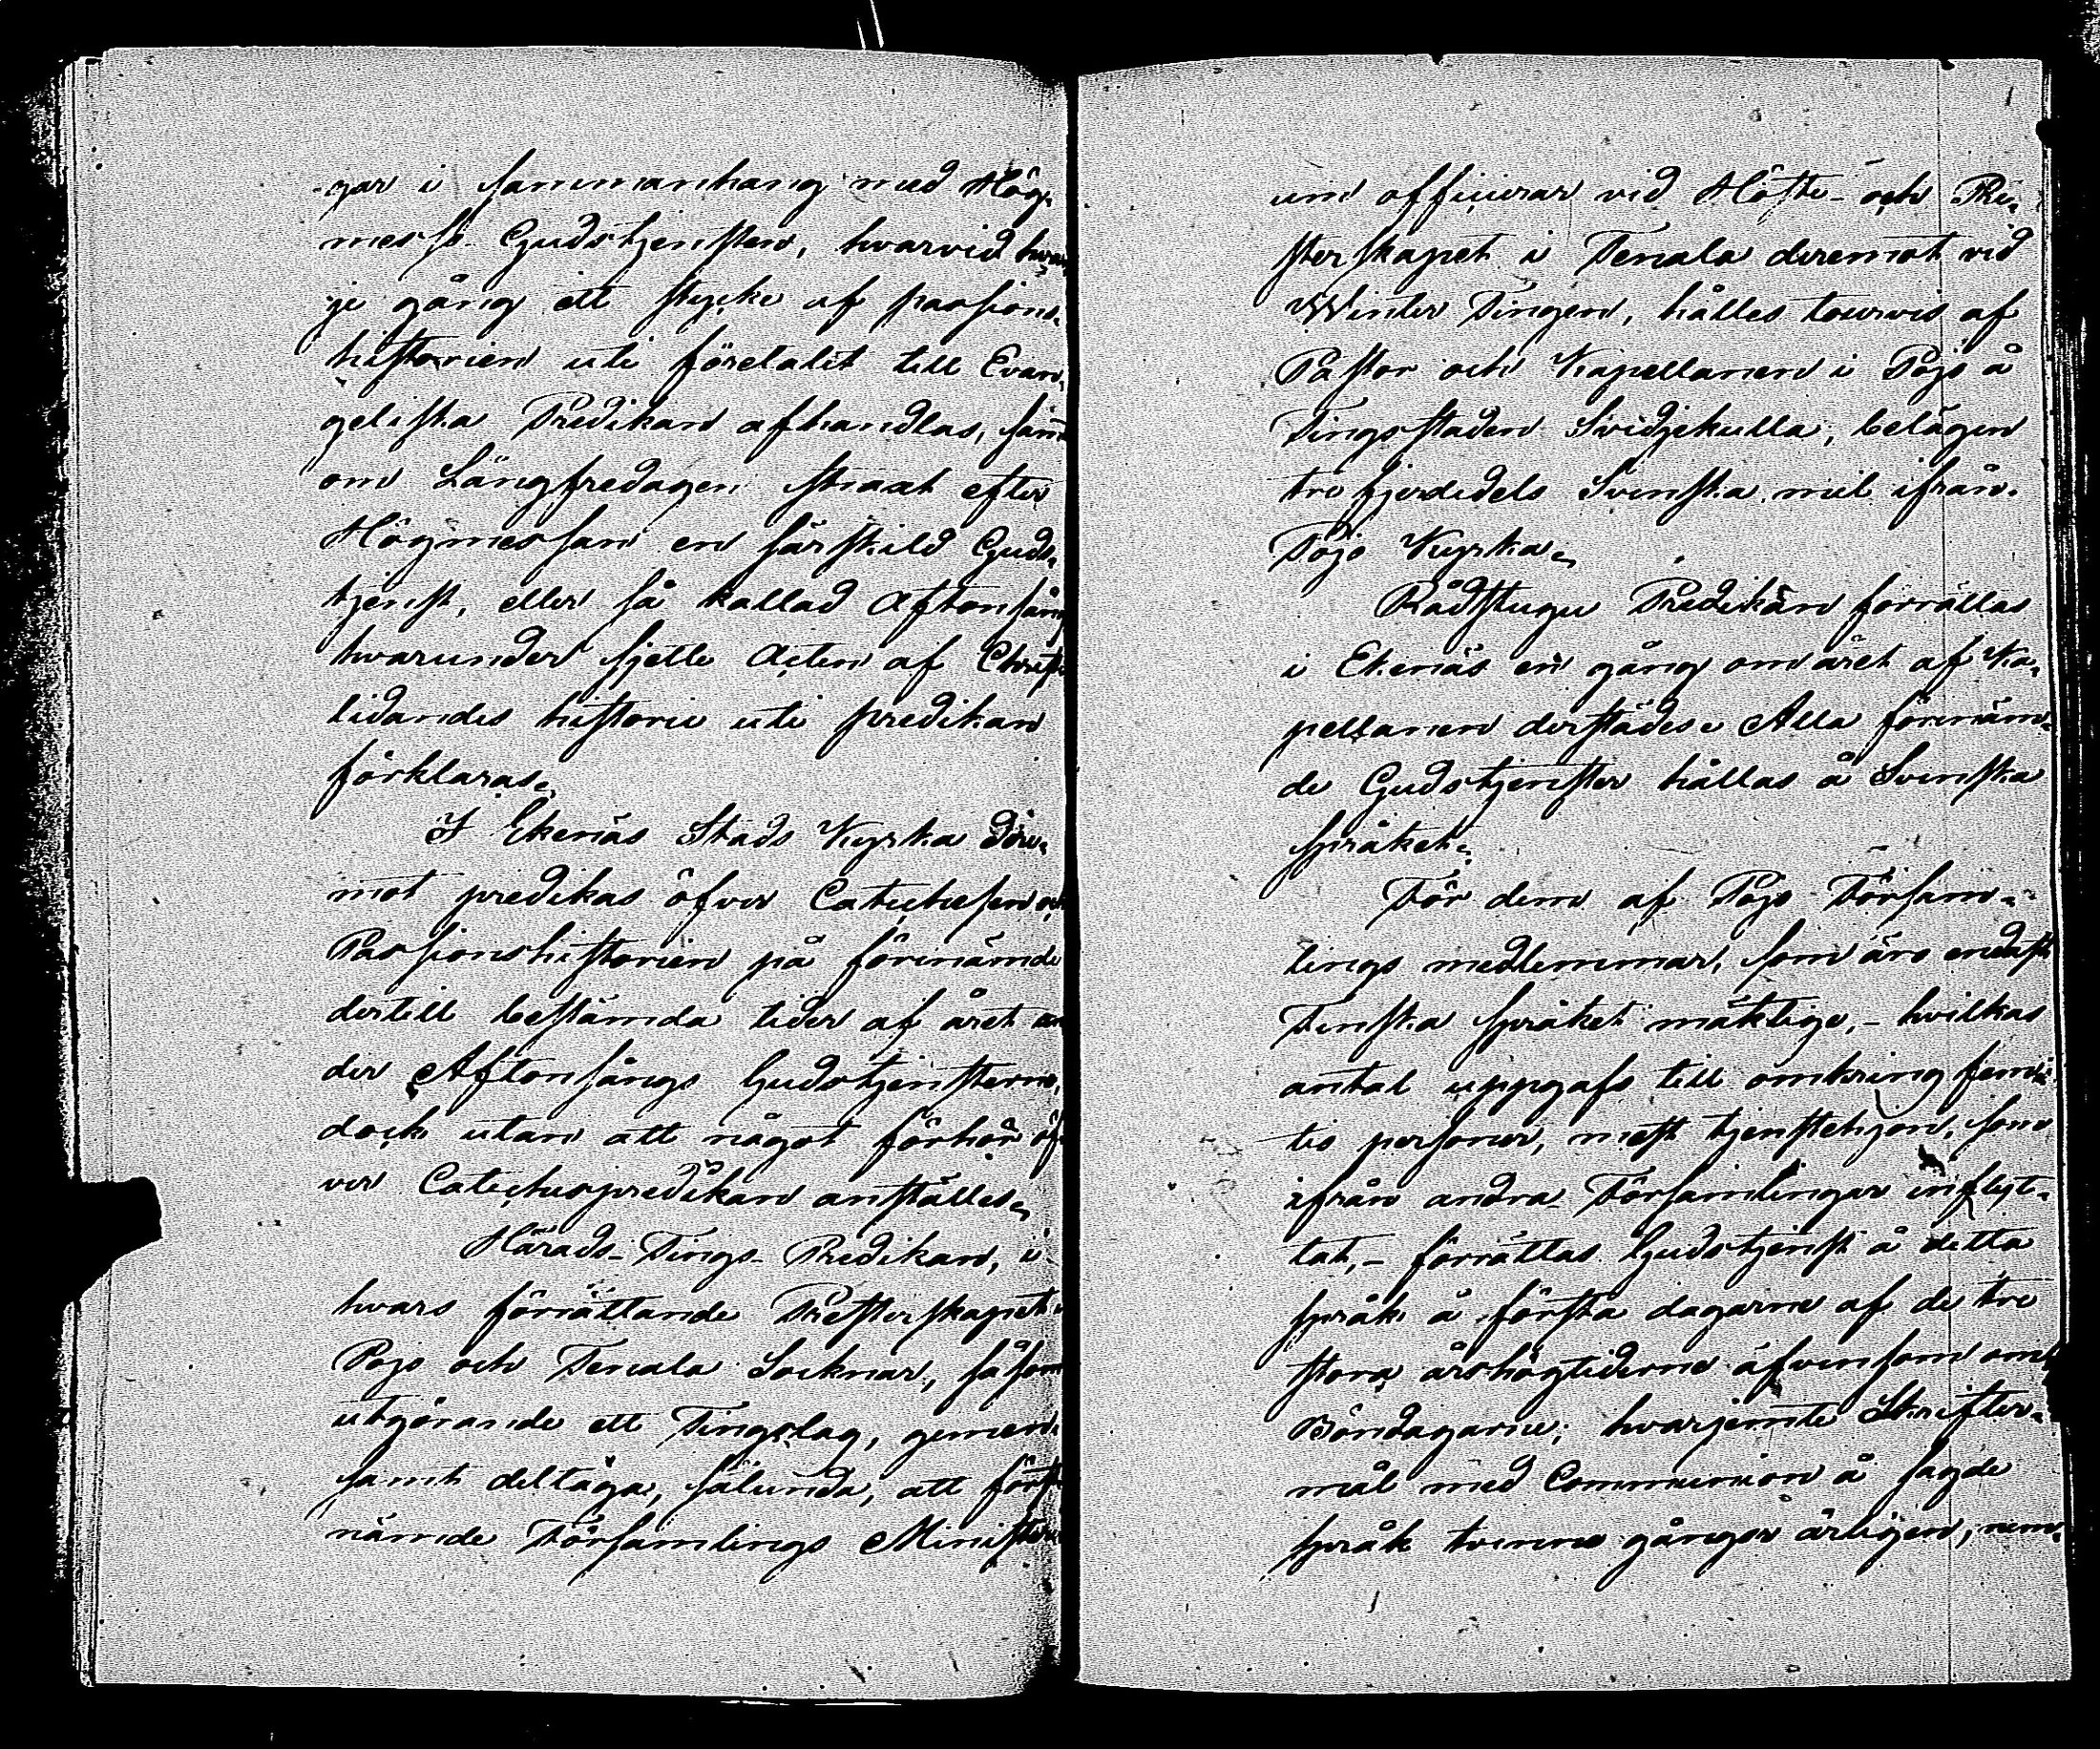 gar i sammanhang med Hög-
messo Gudstjensten, hvarvid hvar
je gång ett stycke af passions-
historien uti företalet till Evan-
geliska Predikan afhandlas, samt
om Långfredagen straxt efter
Högmessan en särskild Guds-
tjenst, eller så kallad Aftonsång
hvarunder sjelfe Acten af Christi
lidandes historie uti predikan
förklaras.
I Ekenäs Stads Kyrka dere-
mot predikas öfver Catechesen och
Passionshistorien på förenämde
dertill bestämda tider af året un
der Aftonsångs Gudstjensterne,
dock utan att något förhör öf-
ver Catechespredikan anställes.
Härads-Tings-Predikan, i
hvars förrättande Presterskapet i
Pojo och Tenala Socknar, såsom
utgörande ett Tingslag, gemen-
samt deltaga, sålunda, att först
nämde Församlings Ministeri
um officierar vid Höste- och Pre-
sterskapet i Tenala deremot vid
Winter Tingen, hålles tourvis af
Pastor och Kapellanen i Pojo å
Tingsstaden Svidjekulla, belägen
tre fjerdedels Svenska mil ifrån
Pojo Kyrka.
Rådstugu Predikan förrättas
i Ekenäs en gång om året af Ka-
pellanen derstädes. Alla förenäm-
de Gudstjenster hållas å Svenska
språket.
För dem af Pojo Försam-
lings medlemmar, som äro endast
Finska språket mäktige, - hvilkas
antal uppgafs till omkring femti
tio personer, mest tjenstehjon, som
ifrån andra Församlingar inflyt-
tat, - förrättas Gudstjenst å detta
språk å första dagarne af de tre
stora årshögtiderne äfvensom om
Böndagarne; hvarjemte Skrifter-
mål med Communion å sagde
språk tvenne gånger årligen, nem-